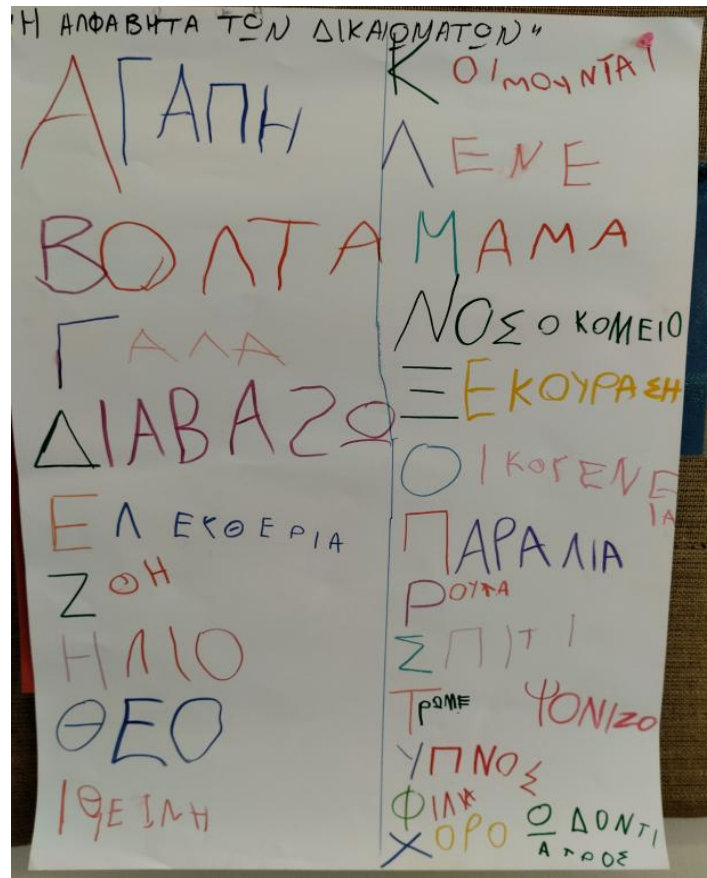 "Η ΑΛΦΑΒΗΤΑ ΤΩΝ ΔΙΚΑΙΩΜΑΤΩΝ"
ΑΓΑΠΗ
ΒΟΛΤΑ
ΓΑΛΑ
ΔΙΑΒΑΖΩ
ΕΛΕΚΘΕΡΙΑ
ΖΟΗ
ΗΛΙΟ
ΘΕΟ
ΚΟΙΜΟΥΝΤΑΙ
ΛΕΝΕ
ΜΑΜΑ
ΝΟΣΟΚΟΜΕΙΟ
ΞΕΚΟΥΡΑΣΗ
ΟΙΚΟΓΕΝΕ
ΙΑ
ΠΑΡΑΛΙΑ
ΡΟΥΧΑ
ΣΠΙΤΙ
ΤΡΩΜΕ ΨΟΝΙΖΟ
ΥΠΝΟΣ
ΦΙΛΙΑ
ΧΟΡΟ Ω ΔΟΝΤΙ
ΑΤΡΟΣ